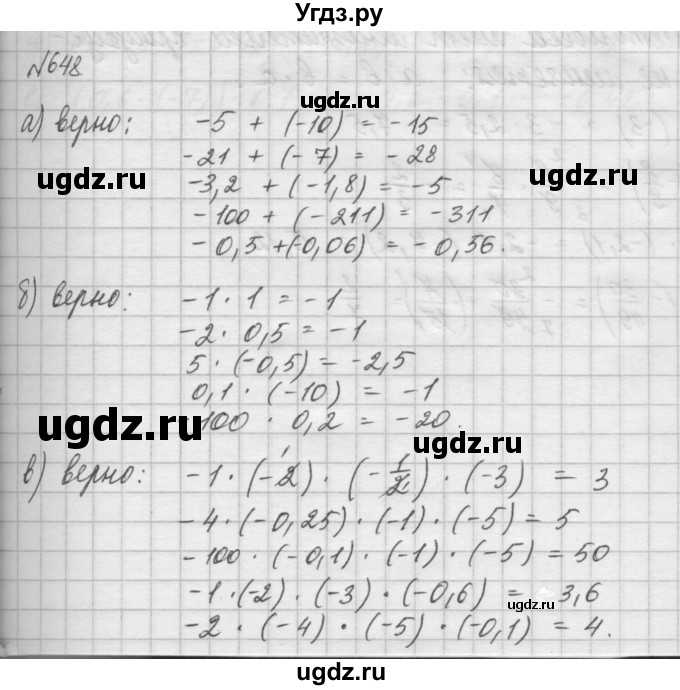 Угдз.ру
№648
ugdz.ru
а) верно: -5 + (-10) = -15
ugdz.ru
-21 + (-7) = -28
ugdz.ru
-3,2 + (-1,8) = -5
-100 + (-211) = -311
ugdz.ru
-0,5 + (-0,06) = -0,56.
б) верно: -1 · 1 = -1
-2 · 0,5 = -1
ugdz.ru
5 · (-0,5) = -2,5
0,1 · (-10) = -1
ugdz.ru
100 · 0,2 = -20.
в) верно: -1 · (-2) · (-1/2) · (-3) = 3
-4 · (-0,25) · (-1) · (-5) = 5
ugdz.ru
-100 · (-0,1) · (-1) · (-5) = 50
-1 · (-2) · (-3) · (-0,6) = 3,6
ugdz.ru
-2 · (-4) · (-5) · (-0,1) = 4.
ugdz.ru
ugdz.ru